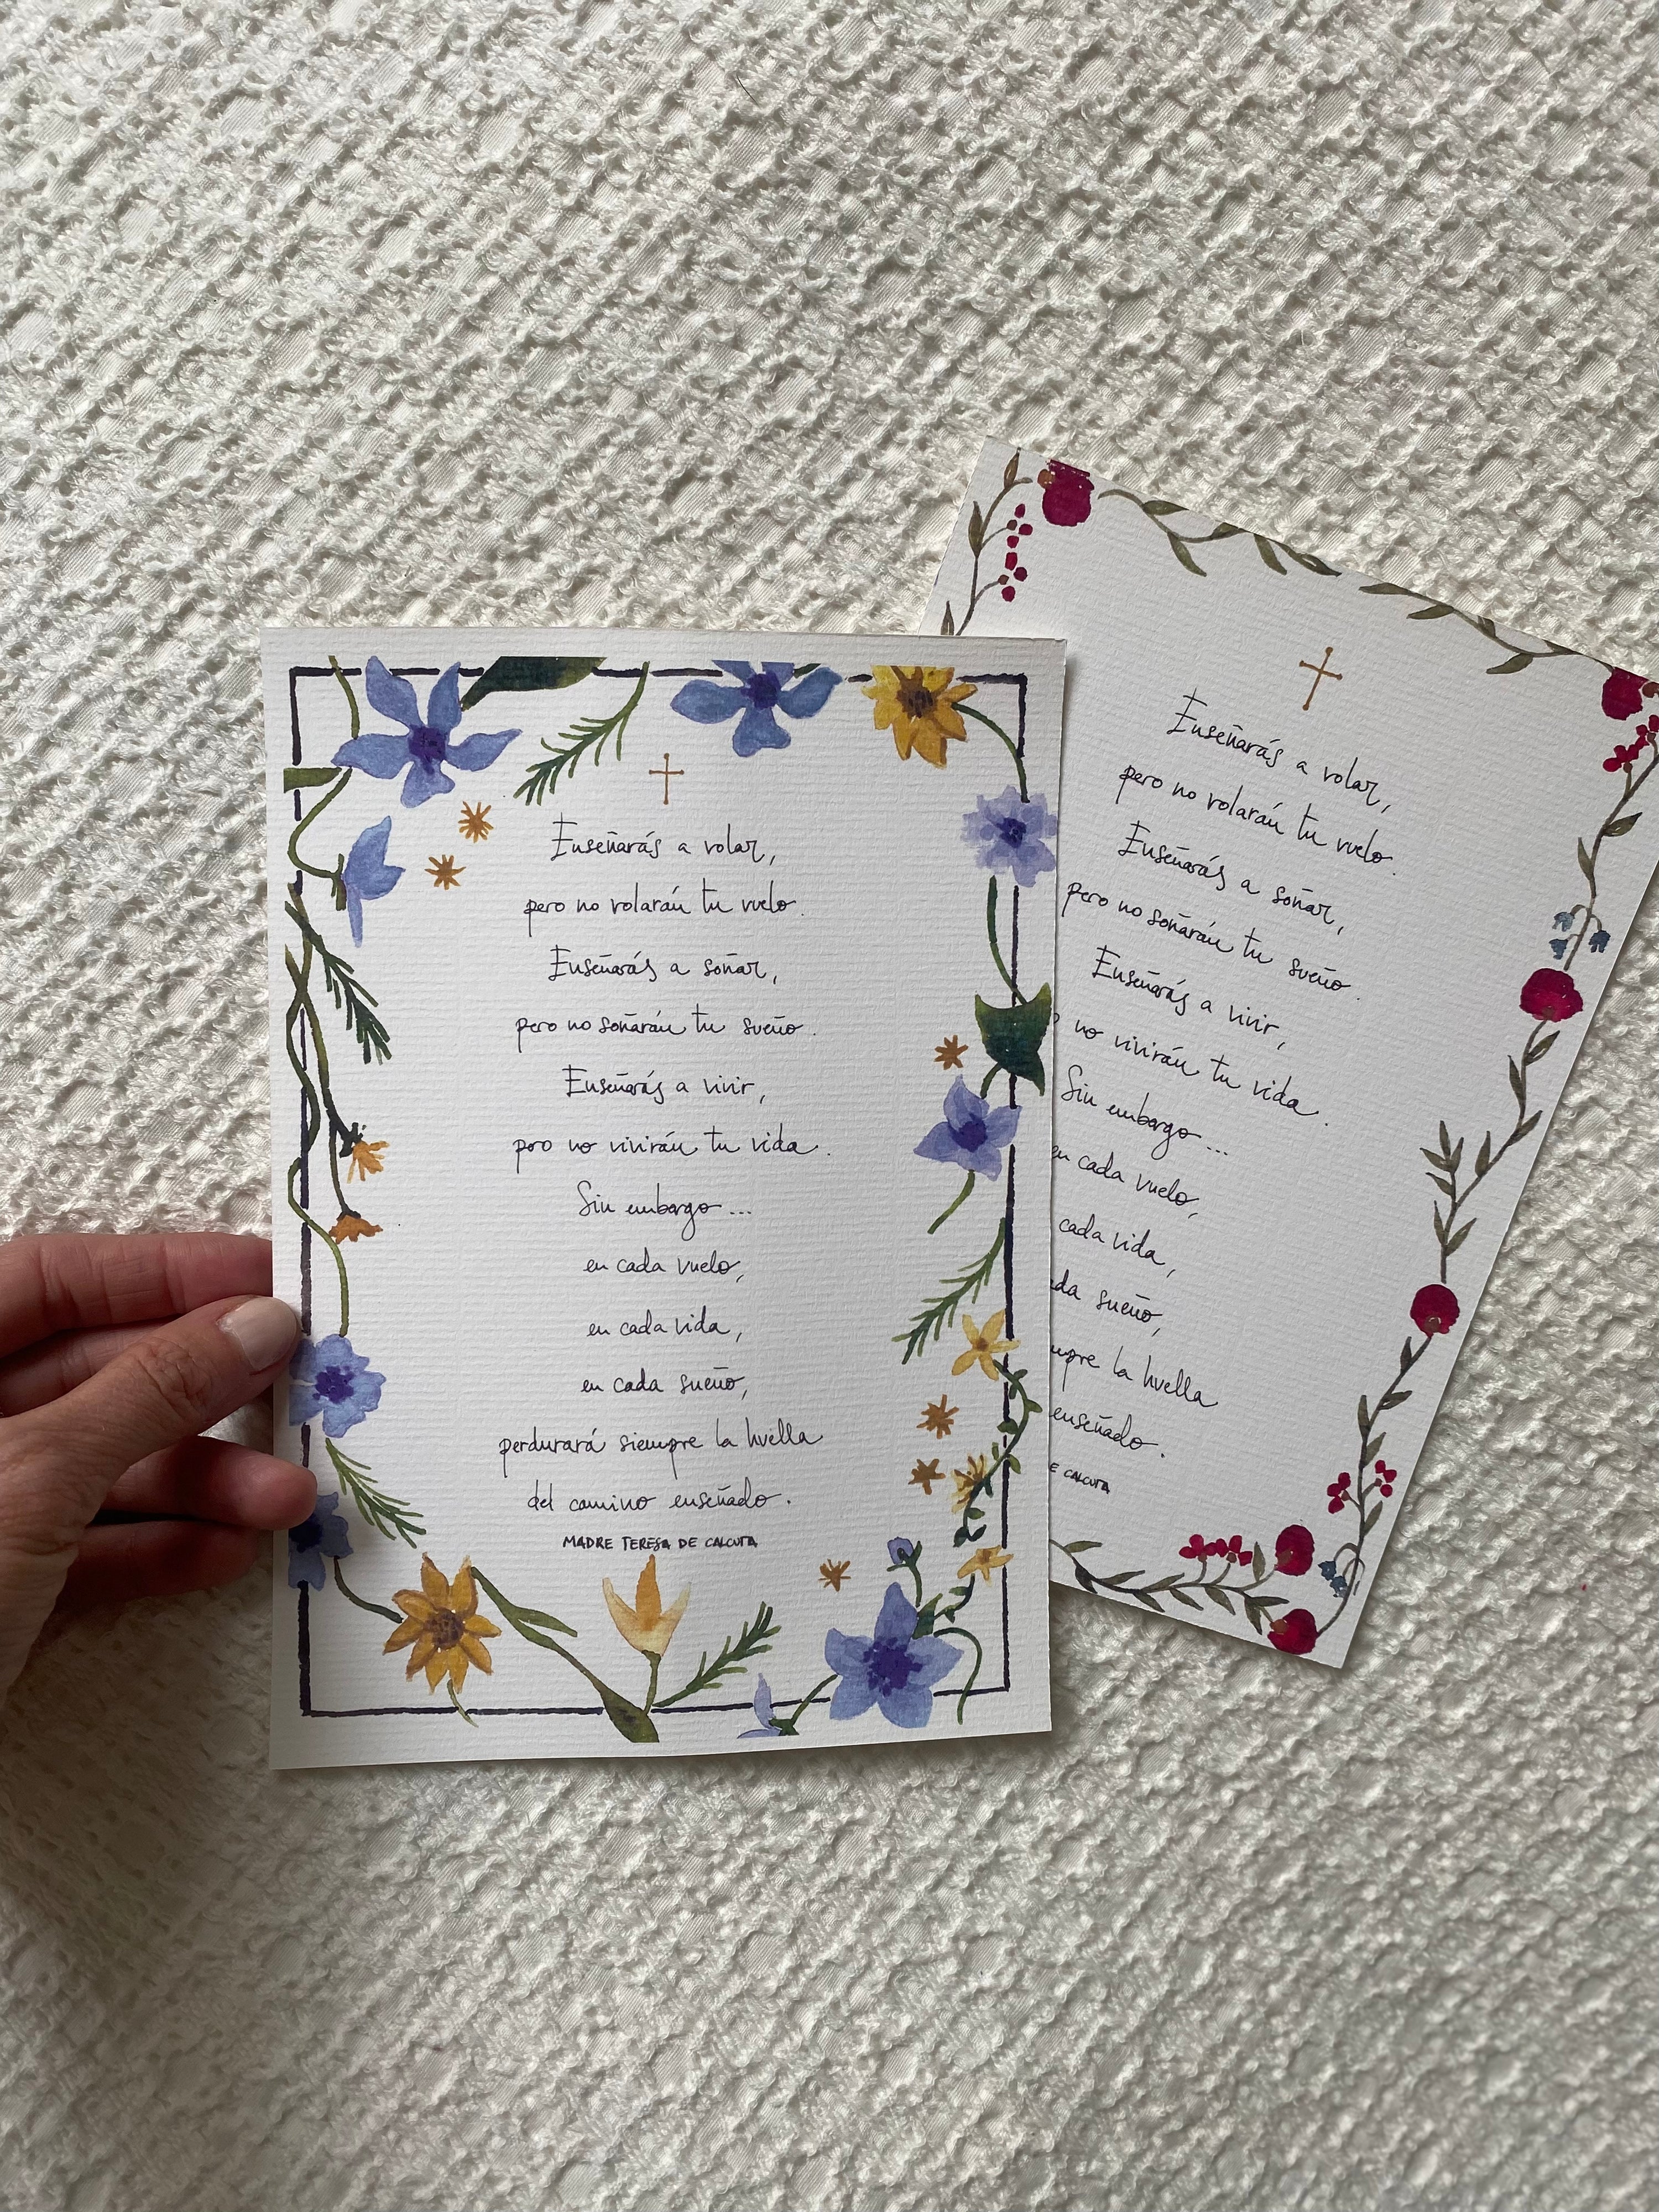 Enseñarás a volar,
pero no volarán tu vuelo.
Enseñarás a soñar,
pero no soñarán tu sueño.
Enseñarás a vivir,
pero no vivirán tu vida.
Sin embargo...
en cada vuelo,
en cada vida,
en cada sueño,
perdurará siempre la huella
del camino enseñado.
MADRE TERESA DE CALCUTA
Enseñarás a volar,
pero no volarán tu vuelo.
Enseñarás a soñar,
pero no soñarán tu sueño.
Enseñarás a vivir,
no vivirán tu vida.
Sin embargo...
en cada vuelo,
cada vida,
sueño,
la huella
enseñado.
CALCUTA